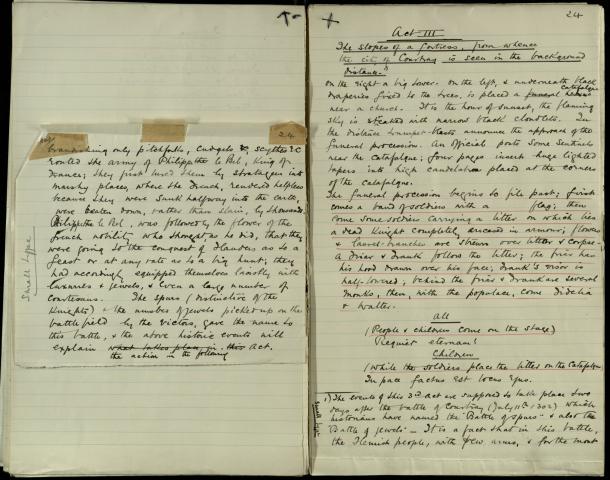 24
brandishing only pitchforks, cudgels &, scythes &c
routed the army of Philippe le Bel, King of
France; they first lured them by stratagem into
marshy places, where the French, rendered helpless
because they were sunk halfway into the earth,
were beaten down, rather than slain, by thousands.
Philippe le Bel, was followed by the flower of the
French nobility who thought as he did, that they
were going to the conquest of Flanders as to a
feast or at any rate as to a big hunt; they
had accordingly equipped themselves lavishly with
luxuries & jewels, & even a large number of
courtesans. The spurs (distinctive of the
Knights) & the number of jewels picked up on the
battlefield by the victors, gave the name to
this battle, & the above historic events will
explain what takes place in this Act.
the action in the following
Small type
24
Act III
The slopes of a fortress, from whence
the city of Courtray is seen in the background
distance.
On the right a big tower. On the left, & underneath black
draperies fixed to the trees, is placed a funeral catafalque
near a church. It is the hour of sunset, the flaming
sky is streaked with narrow black cloudlets. In
the distance trumpet-blasts announce the approach of the
funeral procession. An official posts some sentinels
near the catafalque; four pages insert huge lighted
tapers into high candelabra placed at the corners
of the catafalque.
The funeral procession begins to file past; first
comes a band of soldiers with a flag; then
come some soldiers carrying a litter on which lies
a dead Knight completely encased in armour; flowers
& laurel-branches are strewn over litter & corpse.
A friar & Drank follow the litter; the friar has
his hood drawn over his face, Drank's visor is
half-lowered, behind the friar & Drank are several
monks, then, with the populace, come Didelia
& Walter.
All
(People & children come on the stage)
Requiem eternam!
Children
(While the soldiers place the litter on the Catafalque)
In pace factus est locus ejus.
1) The events of this 3rd act are supposed to take place two
days after the battle of Courtray (July 11th 1302) which
historians have named the "Battle of spurs" & also the
"Battle of jewels" - It is a fact that in this battle,
the Flemish people, with few arms, & for the most
Small type